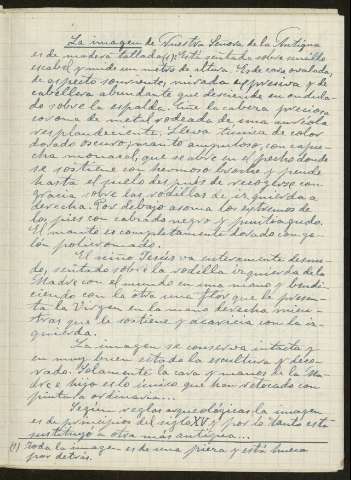 La imagen de Nuestra Señora de la Antigua
es de madera tallada (1). Está sentada sobre sencillo
escabel y mide un metro de altura. Es de cara ovalada,
de aspecto sonriente, mirada expresiva y de
cabellera abundante que desciende en ondula
do sobre la espalda. Ciñe la cabeza preciosa
corona de metal rodeada de una auréola
resplandeciente. Lleva tunica de color
dorado oscuro, manto ampuloso, con capu-
cha monacal, que se abre en el pecho donde
se sostiene con hermoso broche y pende
hasta el suelo después de recogerse con
gracia sobre las rodillas de izquierda a
derecha. Por debajo asoma los extremos de
los pies con calzado negro y puntiagudo.
El manto es completamente dorado con ga-
lón polícromado.
El niño Jesús va enteramente desnu-
do, sentado sobre la rodilla izquierda de la
Madre con el mundo en una mano y bendi-
ciendo con la otra una flor que le presen-
ta la Virgen en la mano derecha mien-
tras que le sostiene y acaricia con la iz-
quierda.
La imagen se conserva intacta y
en muy buen estado la escultura y deco-
rado. Solamente la cara y manos de la Ma-
dre e hijo es lo único que han retocado con
pintura ordinaria...
Según reglas arqueológicas la imagen
es de principios del siglo XV y por lo tanto está
sustituyó a otra más antigua...
(1) Toda la imagen es de una pieza y está hueca
por detrás.